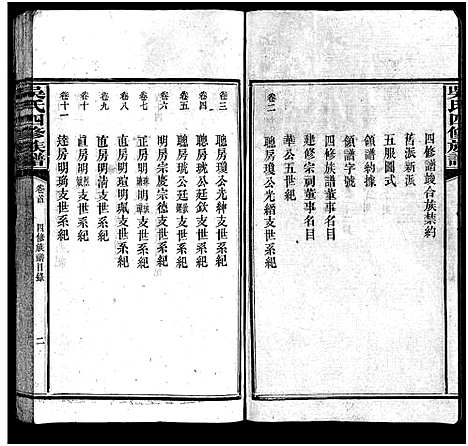 吳氏四修族譜
四修譜竣合族禁約
舊派新派
五服圖式
領譜約據
領譜字號
四修族譜董事名目
建修宗祠董事名目
華公五世紀
卷二 聰房瓊公光縉支世系紀
卷三 聰房瓊公光緯支世系紀
卷四 聰房琥公廷欽支世系紀
卷五 聰房琥公廷 支世系紀
卷六 明房宗慶宗德支世系紀
卷七 正房明 支世系紀
卷八 直房明瑄明珮支世系紀
卷九 直房明清支世系紀
卷十 房明 支世系紀
卷十一 達房明瑜支世系紀
吳氏四修族譜
卷首
四修族譜目錄
二